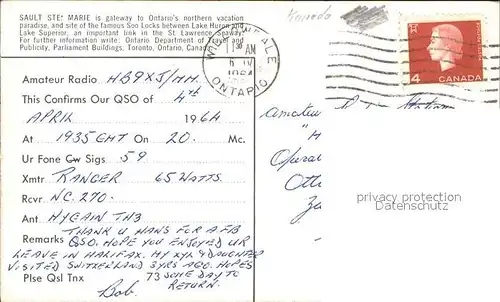 SAULT STE. MARIE is gateway to Ontario's northern vacation
paradise, and site of the famous Soo Locks between Lake Huron and
Lake Superior, an important link in the St. Lawrence Seaway.
For further information write: Ontario Department of Travel and
Publicity, Parliament Buildings, Toronto, Ontario, Canada.
WILLOWDALE
1130 AM
1964
ONTARIO
4
CANADA
Amateur Radio HB9XJ/MM
This Confirms Our QSO of 4th
APRIL 1964
At 1935 GMT On 20 Mc.
Ur Fone Cw Sigs 59
Xmtr RANGER 65 WATTS.
Rcvr NC. 270.
Ant HYGAIN TH3
THANK U HANS FOR A FB
Remarks QSO. HOPE YOU ENJOYED UR
LEAVE IN HALIFAX. MY XYL & DAUGHTER
VISITED SWITZERLAND 3 YRS AGO. HOPES
Plse Qsl Tnx 73 SOME DAY TO
RETURN.
Bob.
Amateur Station
"H
Opera
Ott
privacy protection
Datenschutz